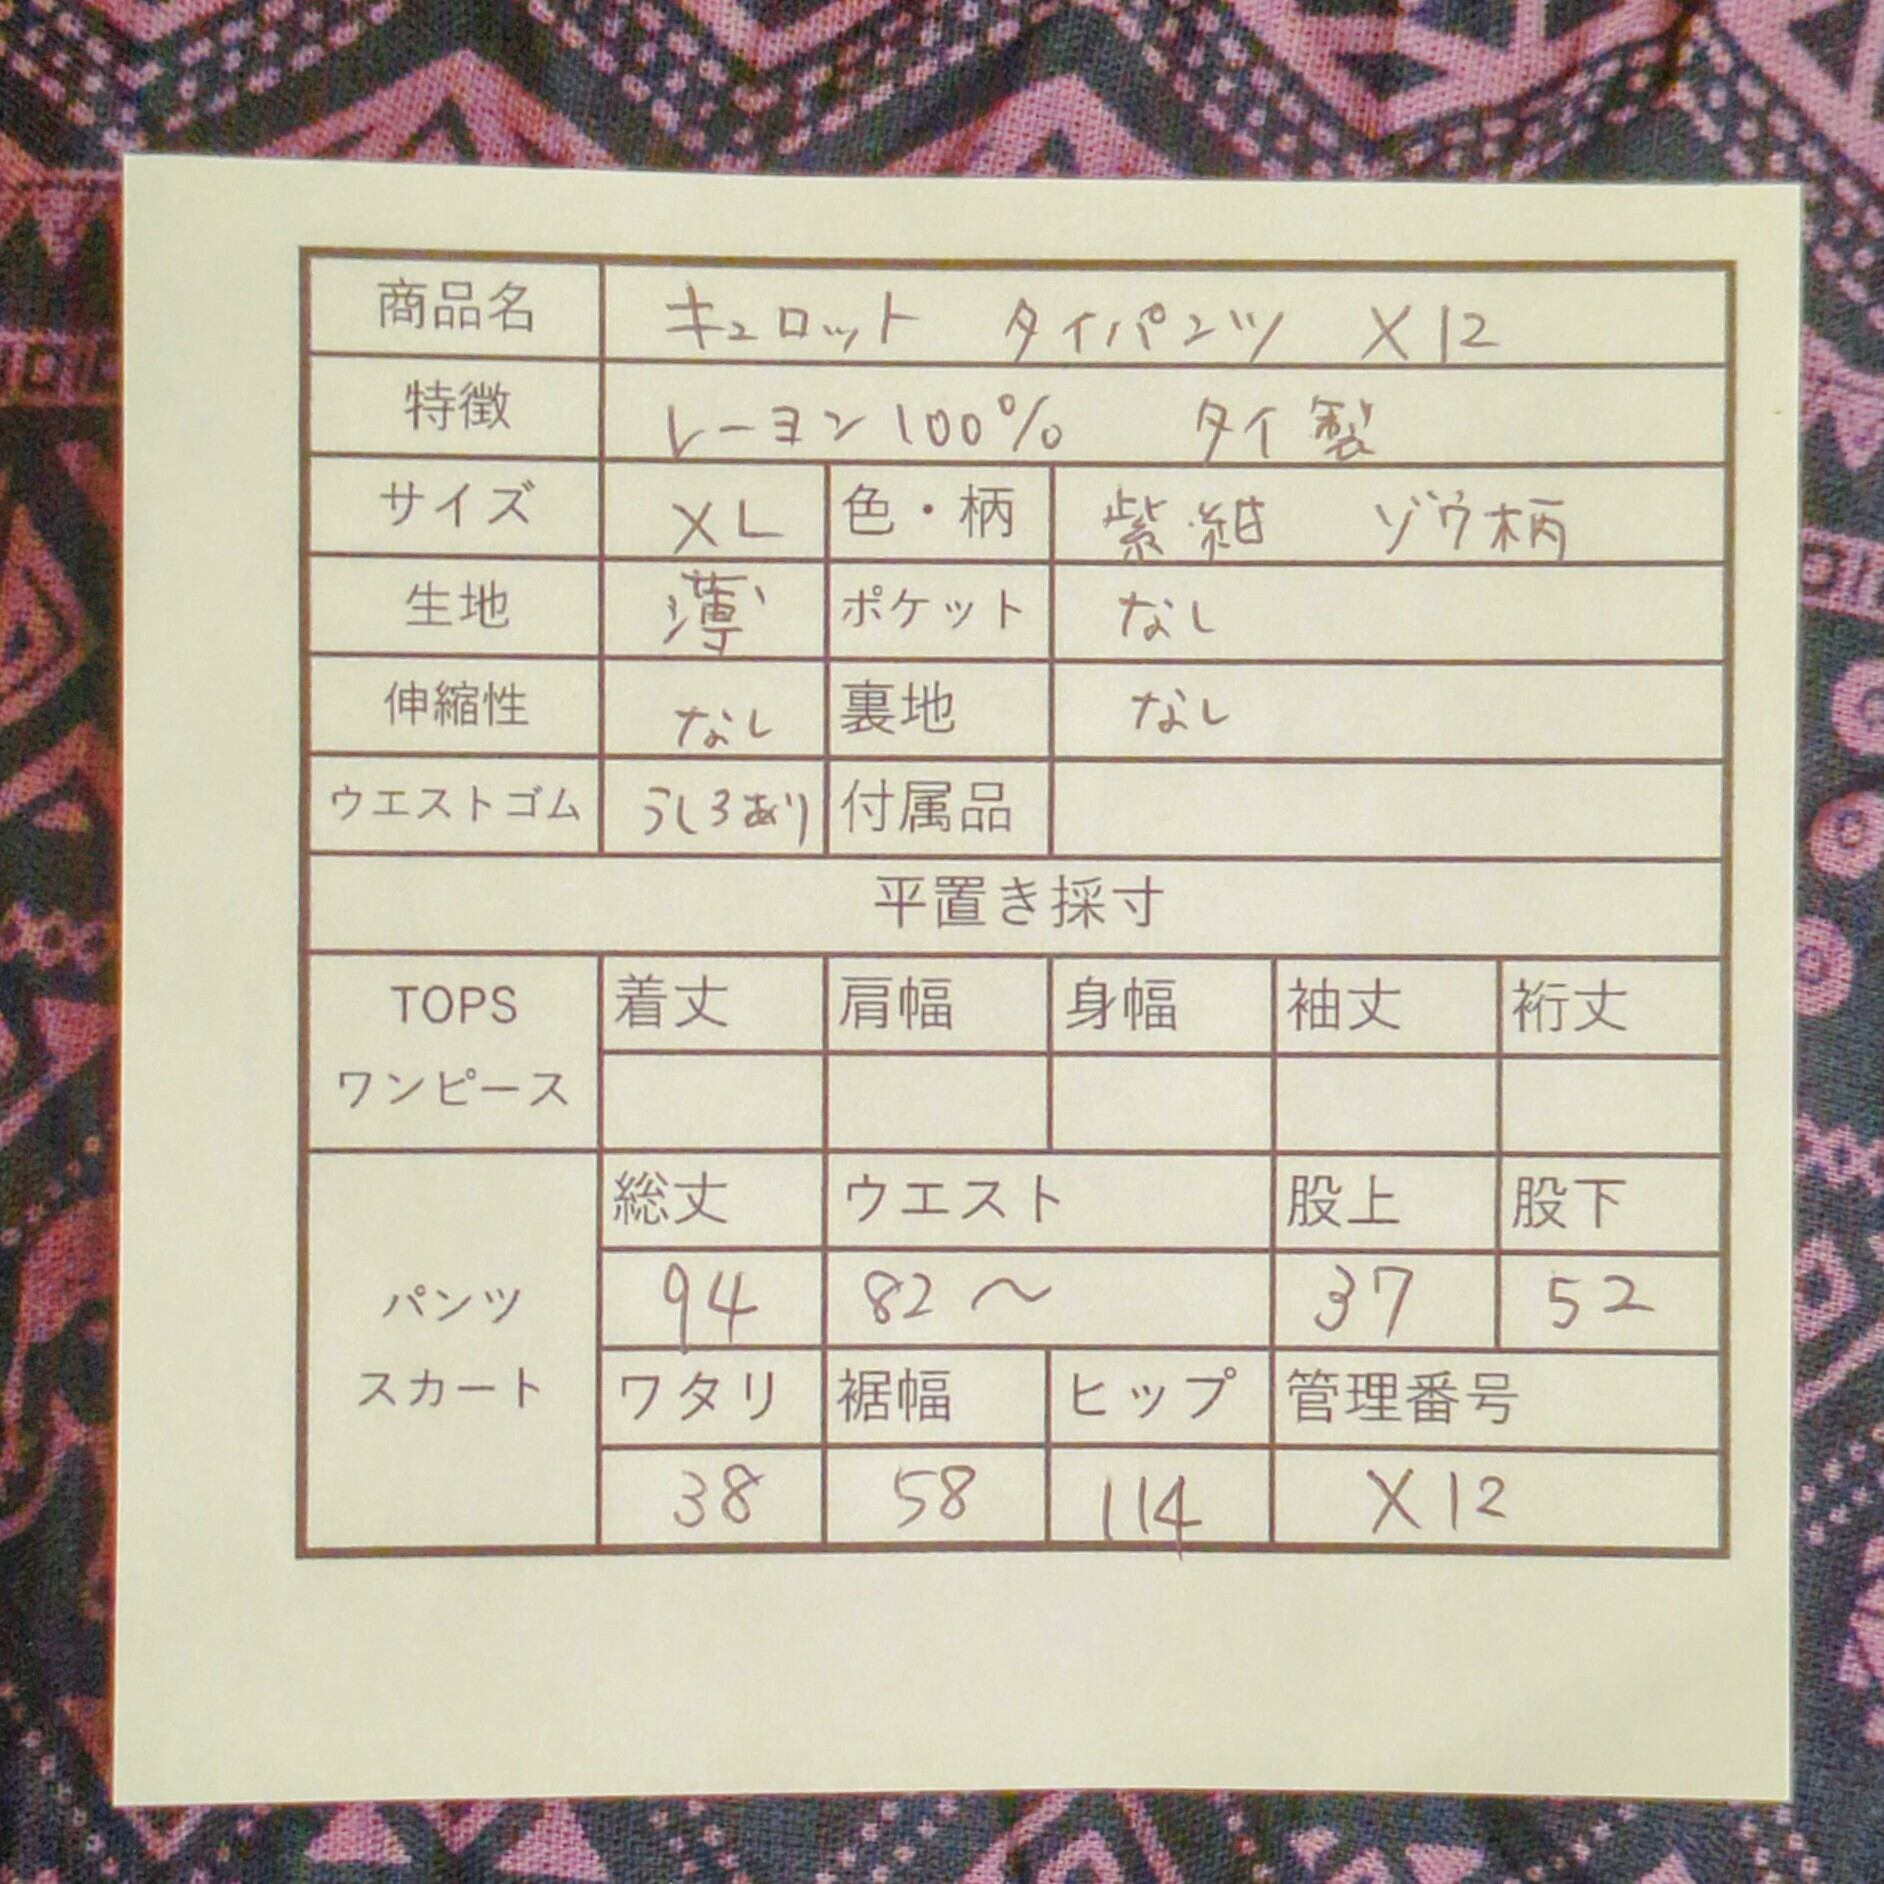 商品名 キュロット タイパンツ X12
特徴 レーヨン100% タイ製
サイズ XL 色・柄 紫紺 ゾウ柄
生地 薄 ポケット なし
伸縮性 なし 裏地 なし
ウエストゴム うしろあり 付属品
平置き採寸
TOPS 着丈 肩幅 身幅 袖丈 裄丈
ワンピース
総丈 ウエスト 股上 股下
パンツ 94 82〜 37 52
スカート ワタリ 裾幅 ヒップ 管理番号
38 58 114 X12